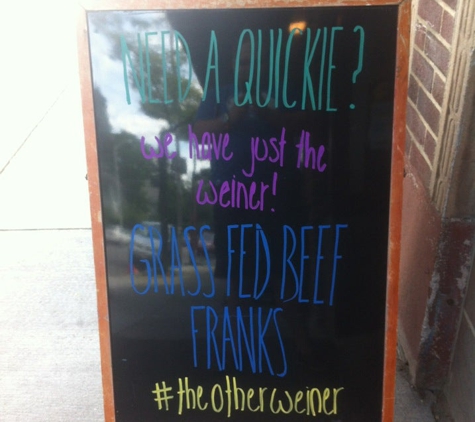 NEED A QUICKIE?
we have just the
weiner!
GRASS FED BEEF
FRANKS
#theotherweiner